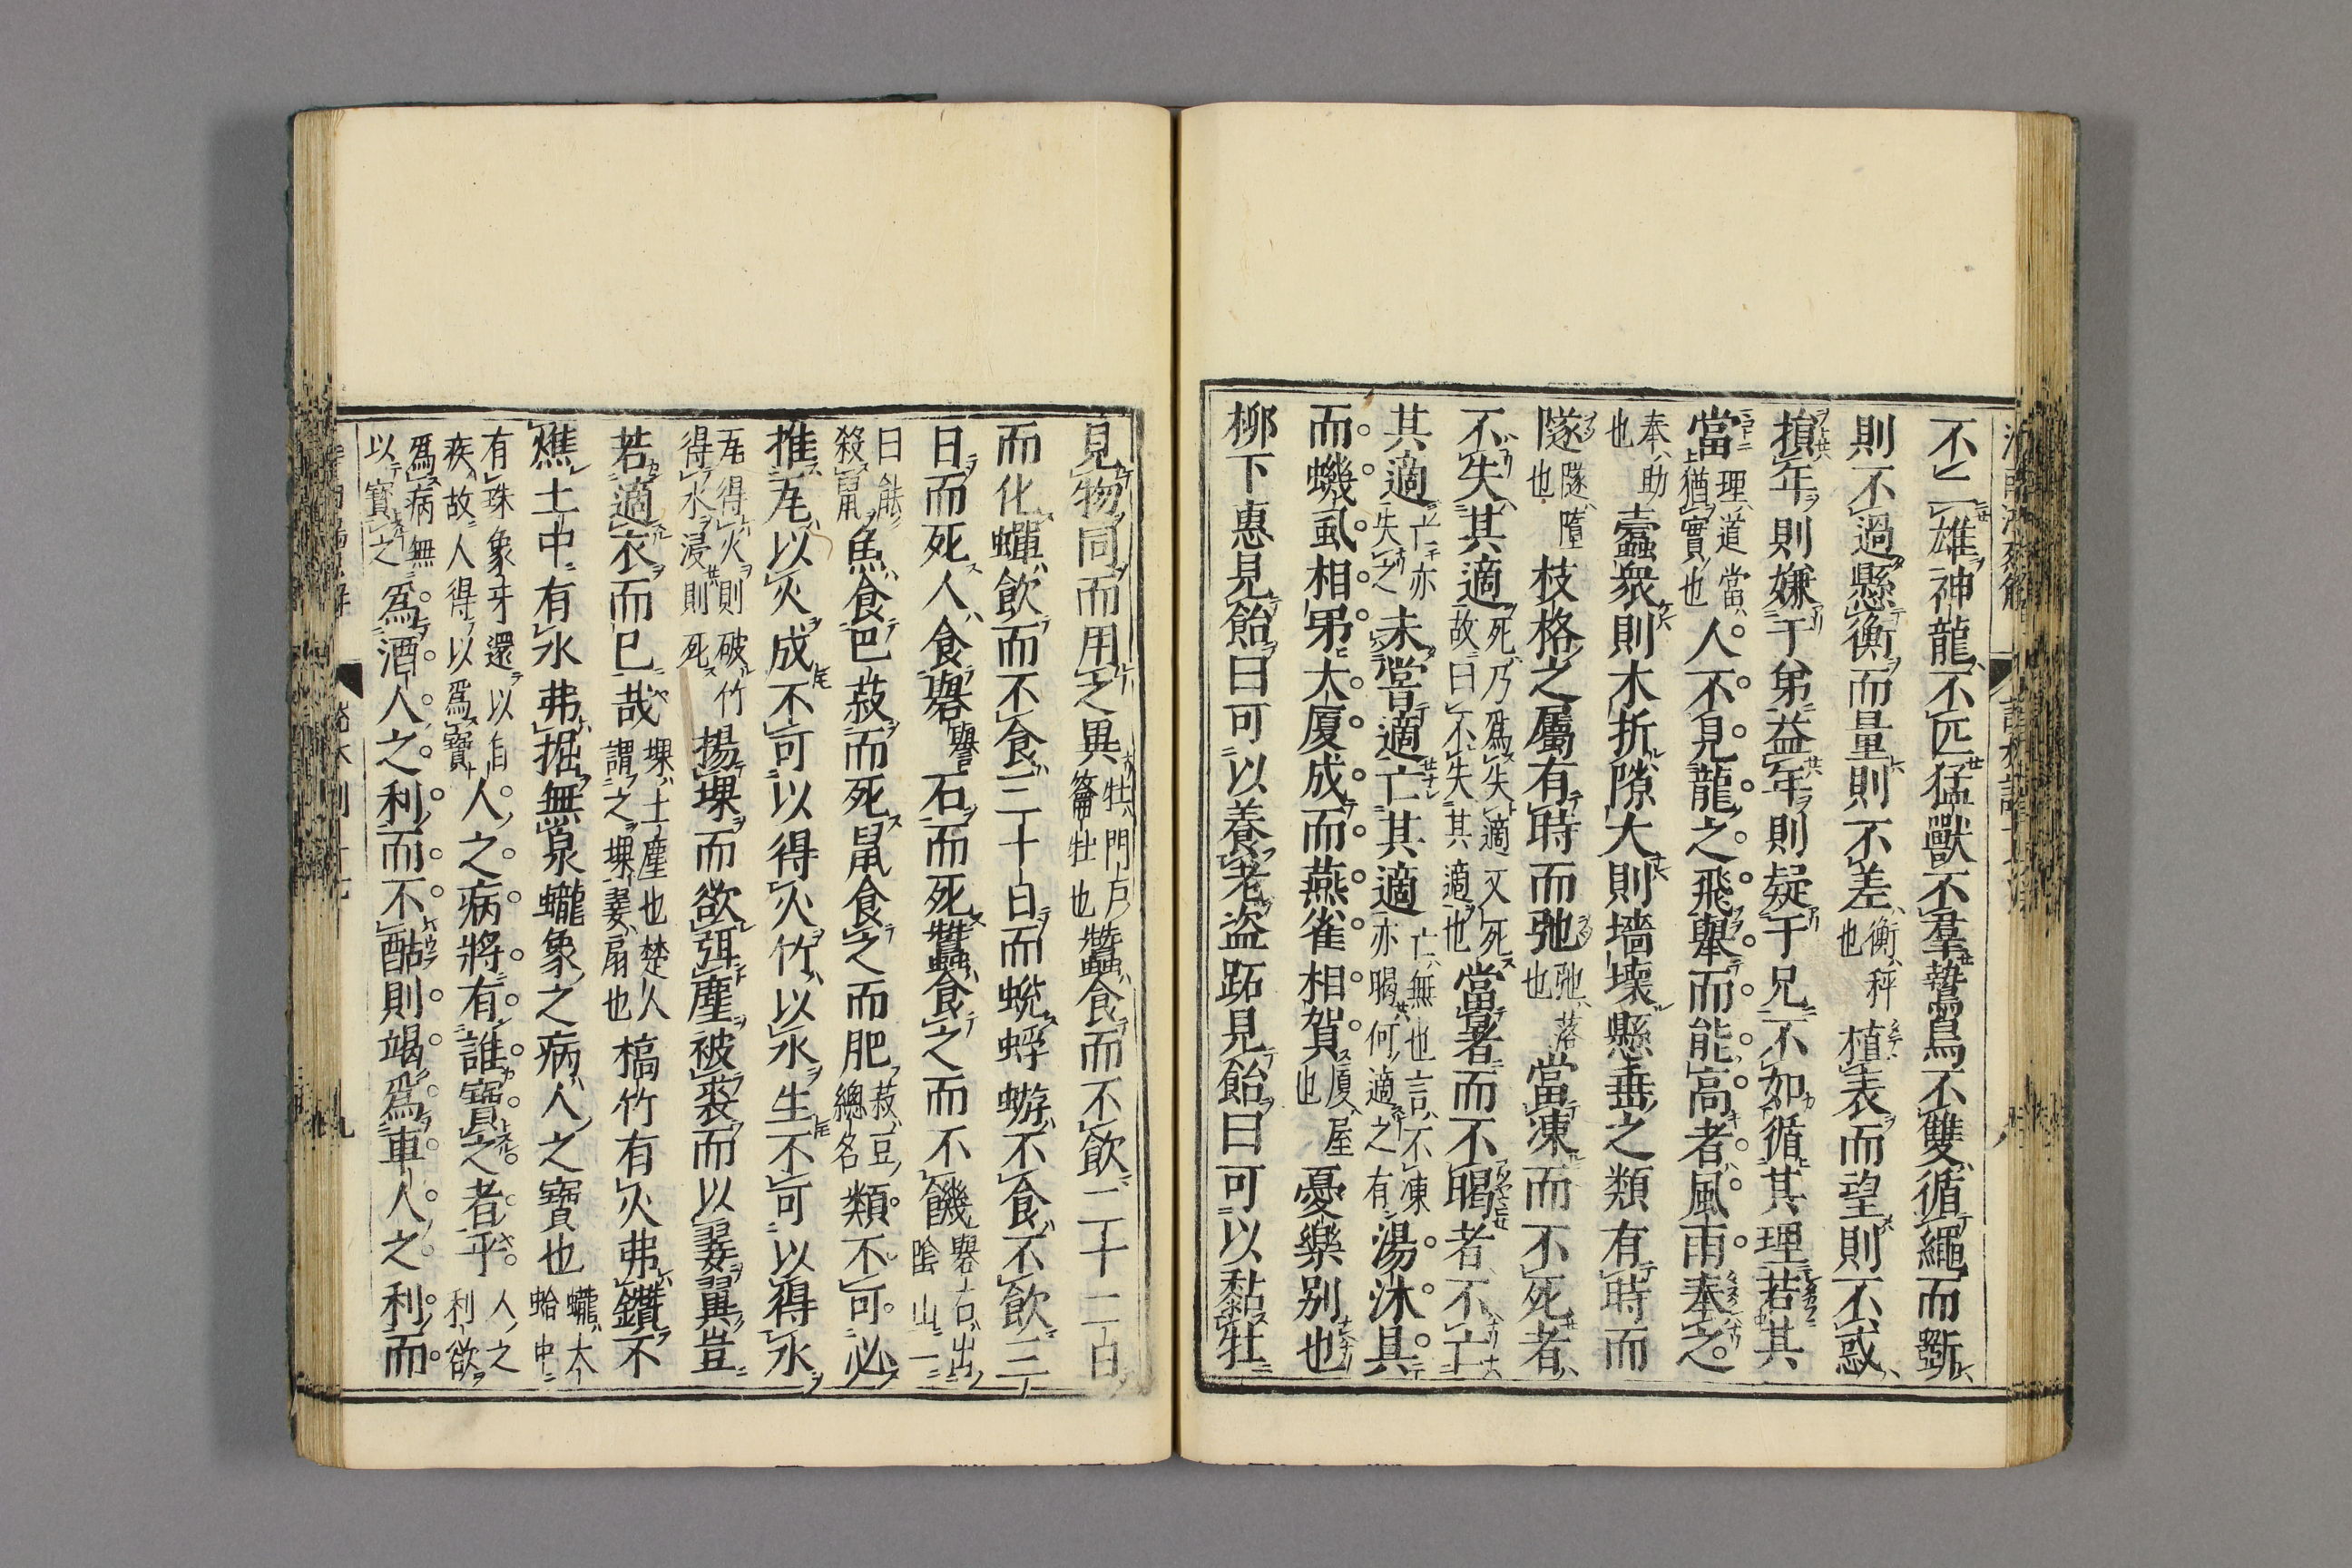 不二雄神龍不匹猛獸不羣鷙鳥不雙循繩而斲
則不過懸衡而量則不差衡秤也植表而望則不惑
損年則嫌于弟益年則疑于兄不如循其理若其
當理道當猶實也人不見龍之飛舉而能高者風雨奉之
奉助也蠹衆則木折隙大則墻壞懸垂之類有時而
隧隧墮也枝格之屬有時而弛弛落也當凍而不死者
不失其適死乃爲失適又死故曰不失其適也當暑而不暍者不亡
其適亡亦失之未嘗適亡其適亡無也言不凍亦暍何適之有湯沐具
而蟣虱相弔大厦成而燕雀相賀厦屋也憂樂别也
柳下惠見飴曰可以養老盗跖見飴曰可以黏牡
見物同而用之異牡門戶籥牡也蠶食而不飮二十二日
而化蟬飮而不食三十日而蛻蜉蝣不食不飮三
日而死人食礜石而死蠶食之而不饑礜石出陰山一
曰能殺鼠魚食巴菽而死鼠食之而肥菽豆總名類不可必
推瓦以火成不可以得火竹以水生不可以得水
瓦得火則破竹得水浸則死揚堁而欲弭塵被裘而以翣翼豈
若適衣而已哉堁土塵也楚人謂之堁翣扇也槁竹有火弗鑽不
㸐土中有水弗掘無泉蠬象之病人之寶也蠬大蛤中
有珠象牙還以自疾故人得以爲寶人之病將有誰寶之者乎人之利欲
爲病無以寶之爲酒人之利而不酤則竭爲車人之利而